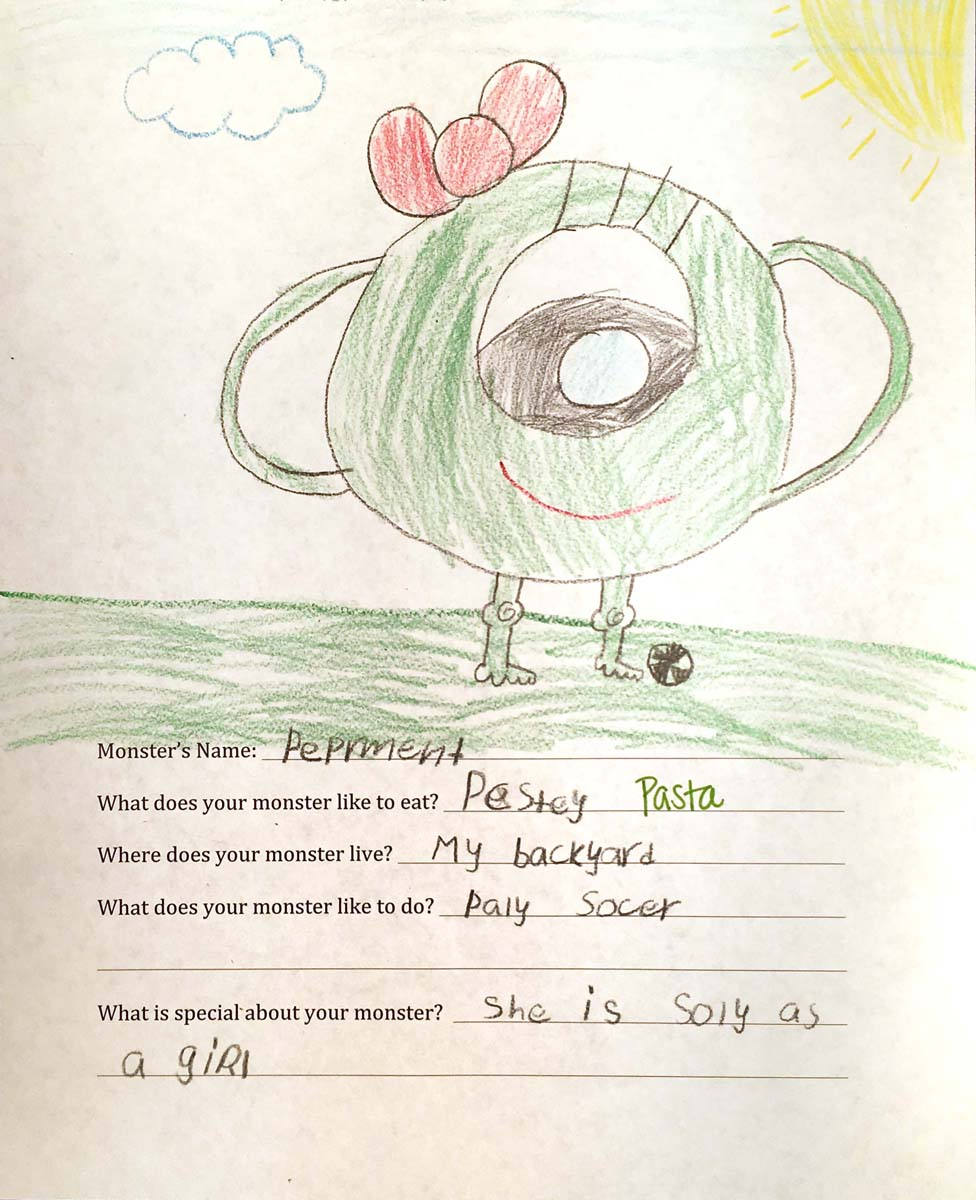 Monster's Name: Peprment
What does your monster like to eat? Pastey Pasta
Where does your monster live? My backyard
What does your monster like to do? Paly Socer
What is special about your monster? She is Soly as
a giRl